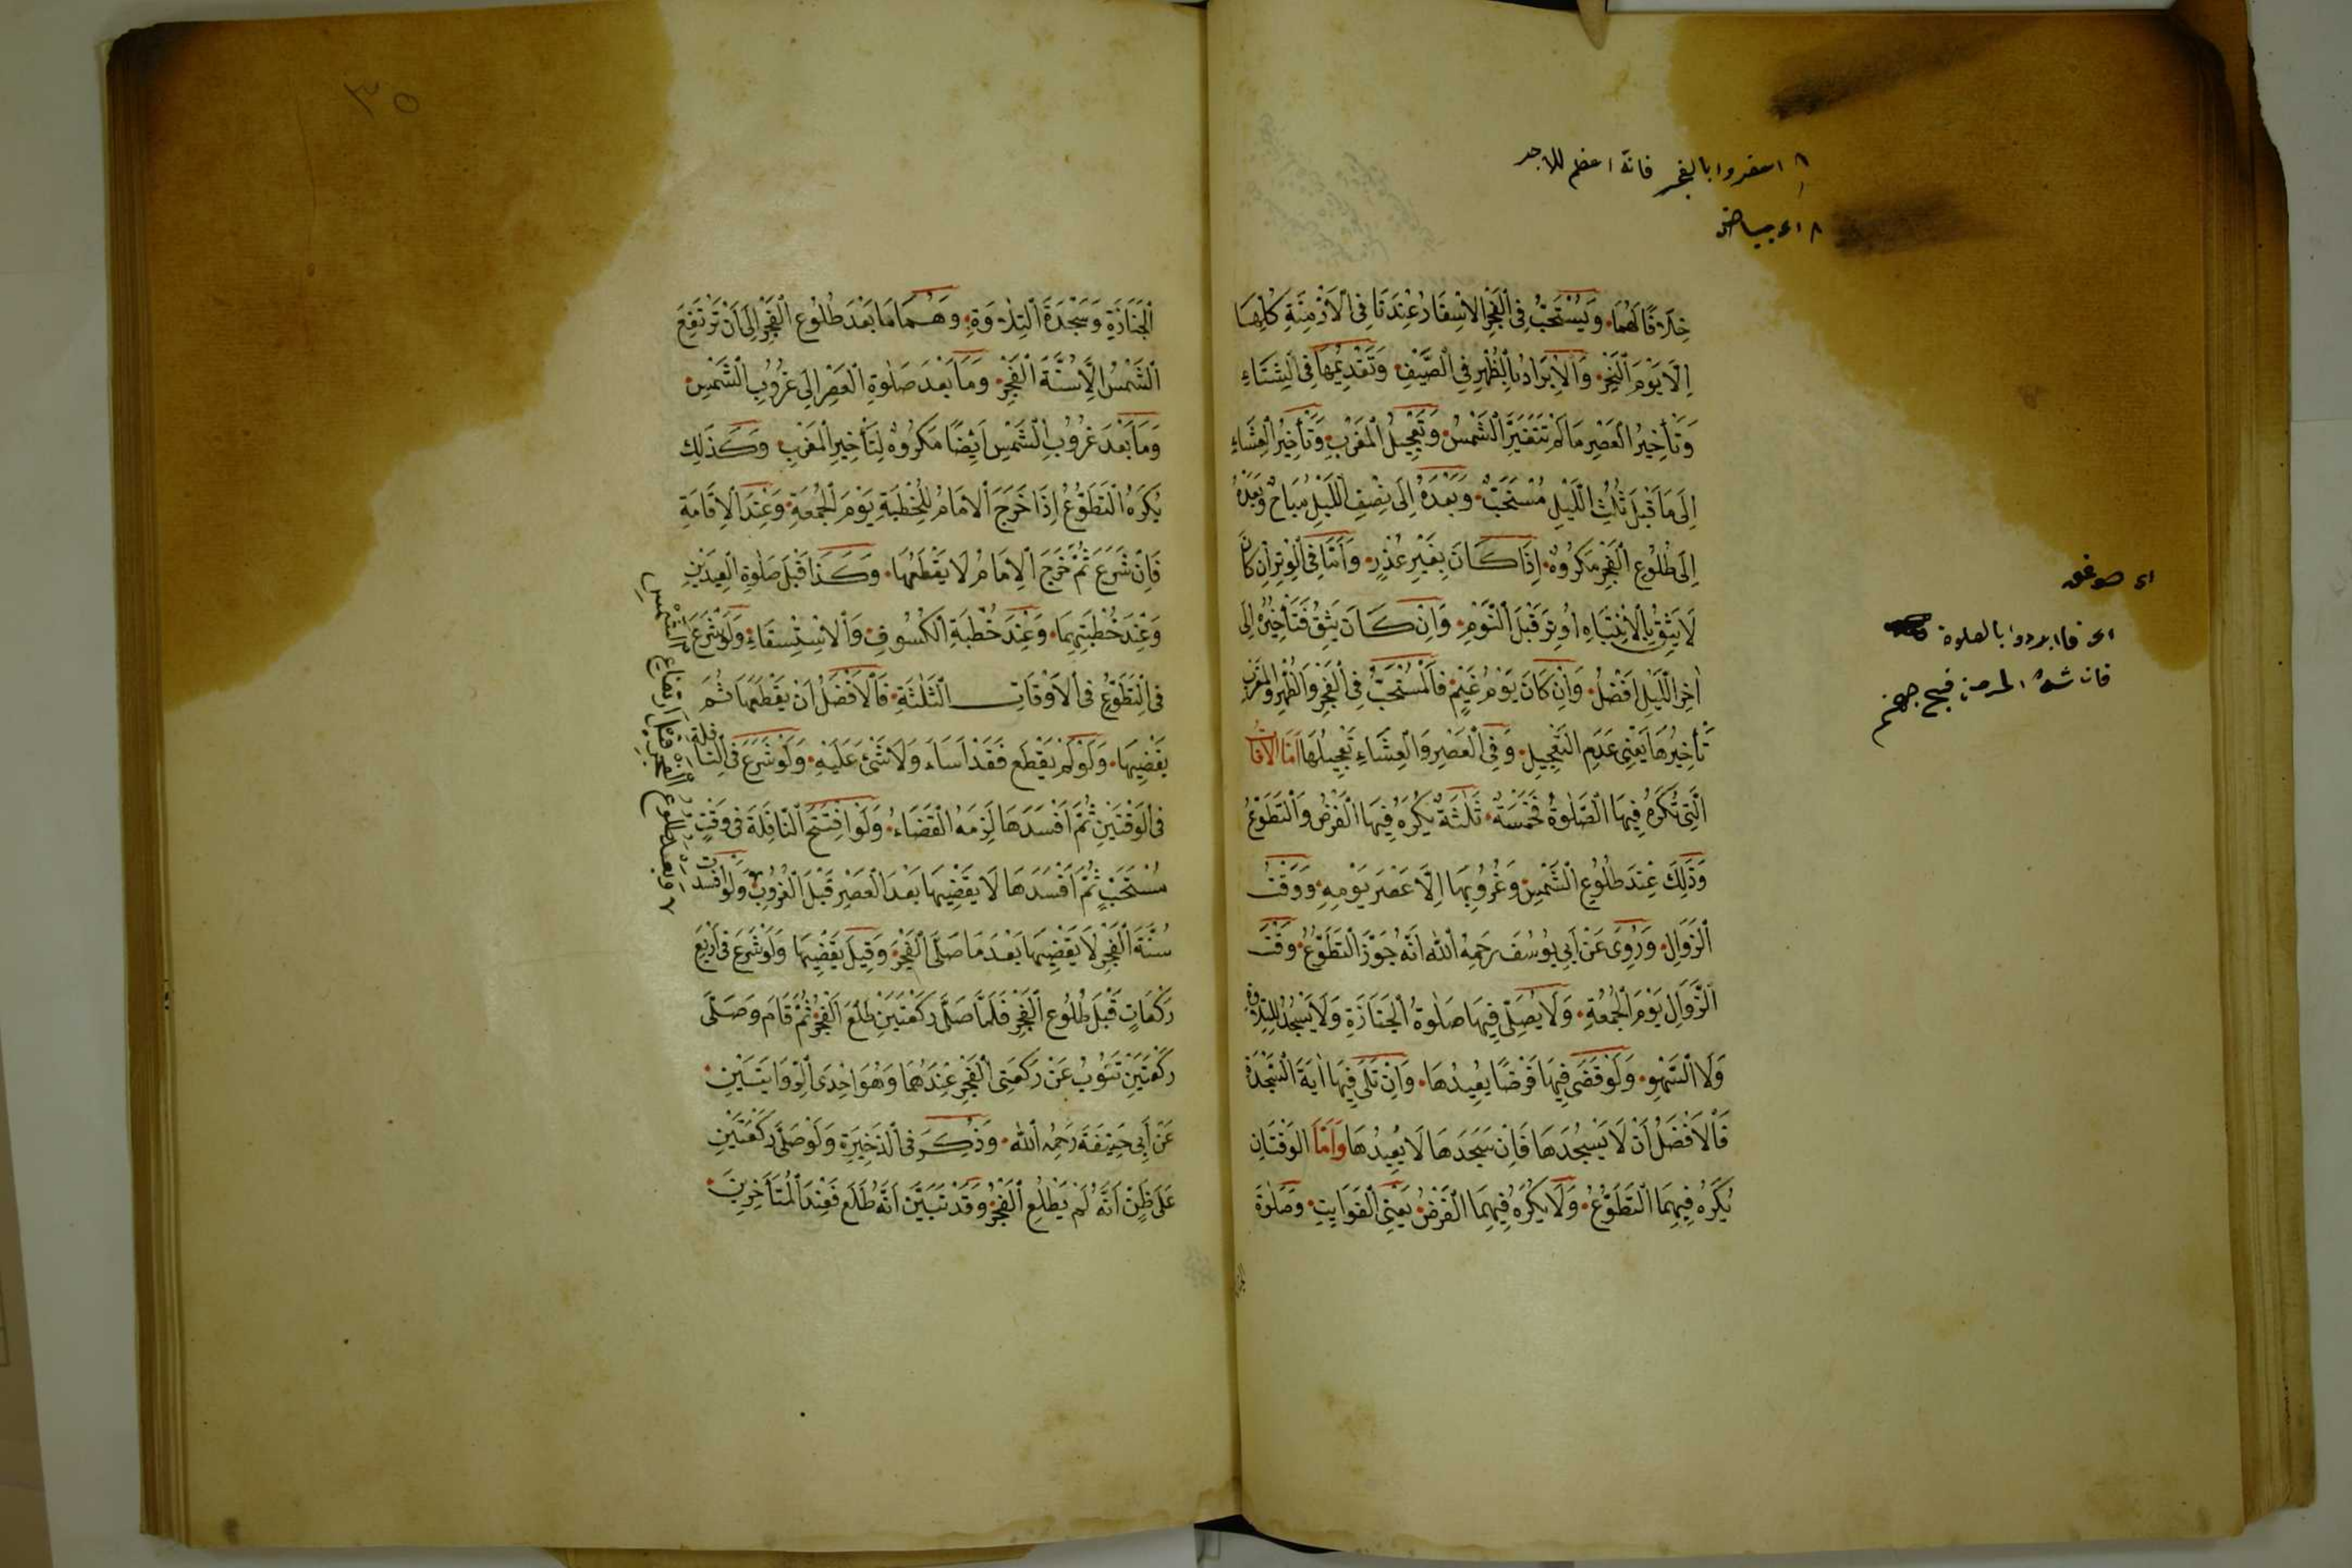 اسفروا بالفجر فانه اعظم للاجر
خِلَافًا لَهُمَا وَيُسْتَحَبُّ فِى الْفَجْرِ الْاِسْفَارُ عِنْدَنَا فِى الْاَزْمِنَةِ كُلِّهَا
اِلَّا يَوْمَ النَّحْرِ وَالْاِبْرَادُ بِالظُّهْرِ فِى الصَّيْفِ وَتَقْدِيْمُهَا فِى الشِّتَاءِ
وَتَأْخِيْرُ الْعَصْرِ مَا لَمْ تَتَغَيَّرِ الشَّمْسُ وَتَعْجِيْلُ الْمَغْرِبِ وَتَأْخِيْرُ الْعِشَاءِ
اِلَى مَا قَبْلَ ثُلُثِ اللَّيْلِ مُسْتَحَبٌّ وَبَعْدَهُ اِلَى نِصْفِ اللَّيْلِ مُبَاحٌ وَبَعْدَهُ
اِلَى طُلُوْعِ الْفَجْرِ مَكْرُوْهٌ اِذَا كَانَ بِغَيْرِ عُذْرٍ وَاَمَّا فِى الْوِتْرِ اِنْ كَانَ
لَا يَثِقُ بِالْاِنْتِبَاهِ اَوْتَرَ قَبْلَ النَّوْمِ وَاِنْ كَانَ يَثِقُ فَتَأْخِيْرُهُ اِلَى
اٰخِرِ اللَّيْلِ اَفْضَلُ وَاِنْ كَانَ يَوْمُ غَيْمٍ فَالْمُسْتَحَبُّ فِى الْفَجْرِ وَالظُّهْرِ وَالْمَغْرِبِ
تَأْخِيْرُهَا يَعْنِى عَدَمِ التَّعْجِيْلِ وَفِى الْعَصْرِ وَالْعِشَاءِ تَعْجِيْلُهَا اَمَّا الْاَوْقَاتُ
الَّتِى تُكْرَهُ فِيْهَا الصَّلٰوةُ فَخَمْسَةٌ ثَلٰثَةٌ يُكْرَهُ فِيْهَا الْفَرْضُ وَالتَّطَوُّعُ
وَذٰلِكَ عِنْدَ طُلُوْعِ الشَّمْسِ وَغُرُوْبِهَا اِلَّا عَصْرَ يَوْمِهِ وَوَقْتُ
الزَّوَالِ وَرُوِىَ عَنْ اَبِى يُوْسُفَ رَحِمَهُ اللّٰهُ اَنَّهُ جَوَّزَ التَّطَوُّعَ وَقْتَ
الزَّوَالِ يَوْمَ الْجُمُعَةِ وَلَا يُصَلِّى فِيْهَا صَلٰوةُ الْجَنَازَةِ وَلَا يَسْجُدُ لِلتِّلَاوَةِ
وَلَا السَّهْوِ وَلَوْ قَضَى فِيْهَا فَرْضًا يُعِيْدُهَا وَاِنْ تَلَى فِيْهَا اٰيَةَ السَّجْدَةِ
فَالْاَفْضَلُ اَنْ لَا يَسْجُدَهَا فَاِنْ سَجَدَهَا لَا يُعِيْدُهَا وَاَمَّا الْوَقْتَانِ
يُكْرَهُ فِيْهِمَا التَّطَوُّعُ وَلَا يُكْرَهُ فِيْهِمَا الْفَرْضُ يَعْنِى الْفَوَايِتِ وَصَلٰوةَ
اى فا ابردوا بالصلوة
فان شدة الحر من فيح جهنم
٣٥
الْجَنَازَةِ وَسَجْدَةَ التِّلَاوَةِ وَهُمَا مَا بَعْدَ طُلُوْعِ الْفَجْرِ اِلَى اَنْ تَرْتَفِعَ
الشَّمْسُ اِلَّا سُنَّةَ الْفَجْرِ وَمَا بَعْدَ صَلٰوةِ الْعَصْرِ اِلَى غُرُوْبِ الشَّمْسِ
وَمَا بَعْدَ غُرُوْبِ الشَّمْسِ اَيْضًا مَكْرُوْهٌ لِتَأْخِيْرِ الْمَغْرِبِ وَكَذٰلِكَ
يُكْرَهُ التَّطَوُّعُ اِذَا خَرَجَ الْاِمَامُ لِلْخُطْبَةِ يَوْمَ الْجُمُعَةِ وَعِنْدَ الْاِقَامَةِ
فَاِنْ شَرَعَ ثُمَّ خَرَجَ الْاِمَامُ لَا يَقْطَعُهَا وَكَذَا قَبْلَ صَلٰوةِ الْعِيْدَيْنِ
وَعِنْدَ خُطْبَتِهِمَا وَعِنْدَ خُطْبَةِ الْكُسُوْفِ وَالْاِسْتِسْقَاءِ وَلَوْ شَرَعَ
فِى التَّطَوُّعِ فِى الْاَوْقَاتِ الثَّلٰثَةِ فَالْاَفْضَلُ اَنْ يَقْطَعَهَا ثُمَّ
يَقْضِيْهَا وَلَوْ لَمْ يَقْطَعْ فَقَدْ اَسَاءَ وَلَا شَىْءَ عَلَيْهِ وَلَوْ شَرَعَ فِى النَّافِلَةِ
فِى الْوَقْتَيْنِ ثُمَّ اَفْسَدَهَا لَزِمَهُ الْقَضَاءُ وَلَوِ افْتَتَحَ النَّافِلَةَ فِى وَقْتٍ
مُسْتَحَبٍّ ثُمَّ اَفْسَدَهَا لَا يَقْضِيْهَا بَعْدَ الْعَصْرِ قَبْلَ الْغُرُوْبِ وَلَوْ اَفْسَدَتْ
سُنَّةَ الْفَجْرِ لَا يَقْضِيْهَا بَعْدَ مَا صَلَّى الْفَجْرَ وَقِيْلَ يَقْضِيْهَا وَلَوْ شَرَعَ فِى اَرْبَعِ
رَكَعَاتٍ قَبْلَ طُلُوْعِ الْفَجْرِ فَلَمَّا صَلَّى رَكْعَتَيْنِ طَلَعَ الْفَجْرُ ثُمَّ قَامَ وَصَلَّى
رَكْعَتَيْنِ تَنُوْبُ عَنْ رَكْعَتَىِ الْفَجْرِ عِنْدَهُمَا وَهُوَ اِحْدَى الرِّوَايَتَيْنِ
عَنْ اَبِى حَنِيْفَةَ رَحِمَهُ اللّٰهُ وَذُكِرَ فِى الذَّخِيْرَةِ وَلَوْ صَلَّى رَكْعَتَيْنِ
عَلَى ظَنِّ اَنَّهُ لَمْ يَطْلُعِ الْفَجْرُ وَقَدْ تَبَيَّنَ اَنَّهُ طَلَعَ فَعِنْدَ الْمُتَأَخِّرِيْنَ
وبعد طلوع الفجر قبل ارتفاع الشمس